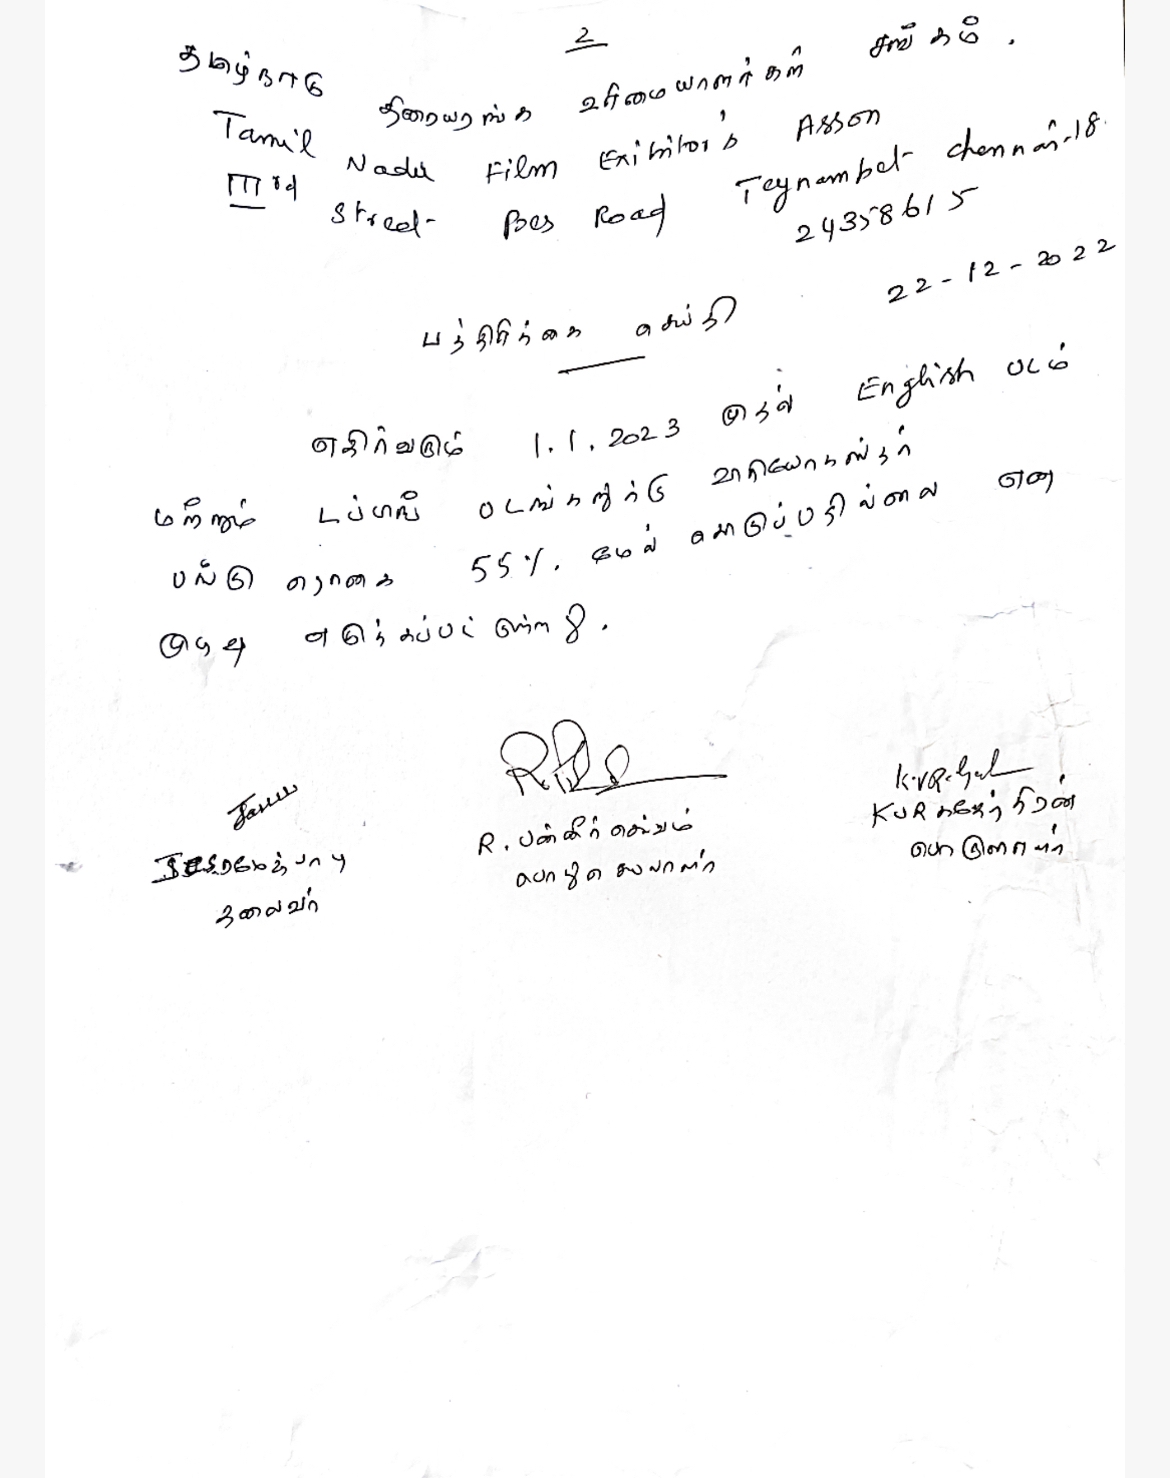 2
தமிழ்நாடு திரையரங்க உரிமையாளர்கள் சங்கம்.
Tamil Nadu Film Exibitor's Asson
IIIrd Street Bes Road Teynambet chennai-18.
24358615
22-12-2022
பத்திரிக்கை செய்தி
எதிர்வரும் 1.1.2023 முதல் English படம்
மற்றும் டப்பிங் படங்களுக்கு விநியோகஸ்தர்
பங்கு தொகை 55%. மேல் கொடுப்பதில்லை என
முடிவு எடுக்கப்பட்டுள்ளது.
R. பன்னீர் செல்வம்
பொதுச செயலாளர்
தலைவர்
K.V.R.
KVR கஜேந்திரன்
பொருளாளர்